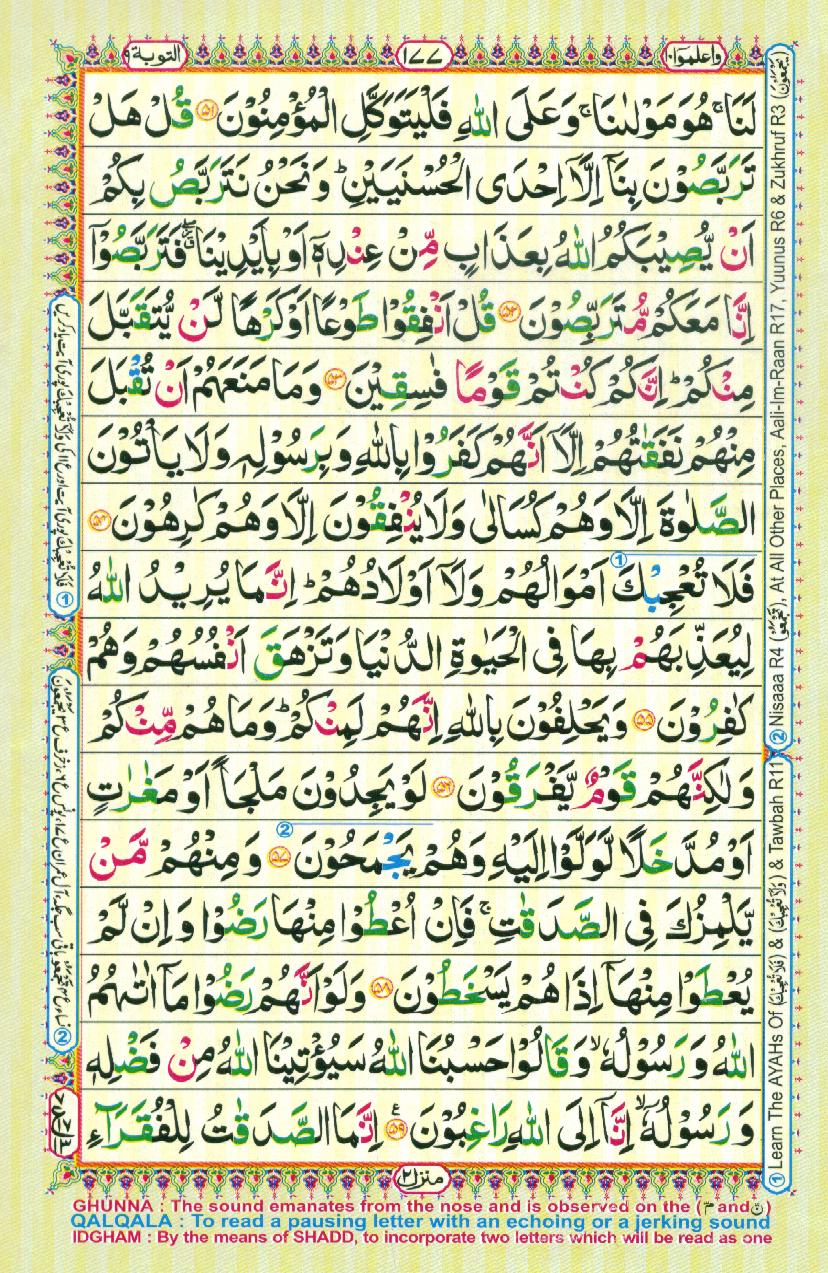 واعلموا ١٠
١٧٧
التوبة ٩
لَنَا ۚ هُوَ مَوْلٰىنَا ۚ وَعَلَى اللّٰهِ فَلْيَتَوَكَّلِ الْمُؤْمِنُوْنَ ﴿٥١﴾ قُلْ هَلْ
تَرَبَّصُوْنَ بِنَاۤ اِلَّاۤ اِحْدَى الْحُسْنَيَيْنِ ؕ وَنَحْنُ نَتَرَبَّصُ بِكُمْ
اَنْ يُّصِيْبَكُمُ اللّٰهُ بِعَذَابٍ مِّنْ عِنْدِهٖۤ اَوْ بِاَيْدِيْنَا ۖ فَتَرَبَّصُوْۤا
اِنَّا مَعَكُمْ مُّتَرَبِّصُوْنَ ﴿٥٢﴾ قُلْ اَنْفِقُوْا طَوْعًا اَوْ كَرْهًا لَّنْ يُّتَقَبَّلَ
مِنْكُمْ ؕ اِنَّكُمْ كُنْتُمْ قَوْمًا فٰسِقِيْنَ ﴿٥٣﴾ وَمَا مَنَعَهُمْ اَنْ تُقْبَلَ
مِنْهُمْ نَفَقٰتُهُمْ اِلَّاۤ اَنَّهُمْ كَفَرُوْا بِاللّٰهِ وَبِرَسُوْلِهٖ وَلَا يَاْتُوْنَ
الصَّلٰوةَ اِلَّا وَهُمْ كُسَالٰى وَلَا يُنْفِقُوْنَ اِلَّا وَهُمْ كٰرِهُوْنَ ﴿٥٤﴾
فَلَا تُعْجِبْكَ اَمْوَالُهُمْ وَلَاۤ اَوْلَادُهُمْ ؕ اِنَّمَا يُرِيْدُ اللّٰهُ
لِيُعَذِّبَهُمْ بِهَا فِى الْحَيٰوةِ الدُّنْيَا وَتَزْهَقَ اَنْفُسُهُمْ وَهُمْ
كٰفِرُوْنَ ﴿٥٥﴾ وَيَحْلِفُوْنَ بِاللّٰهِ اِنَّهُمْ لَمِنْكُمْ ؕ وَمَا هُمْ مِّنْكُمْ
وَلٰكِنَّهُمْ قَوْمٌ يَّفْرَقُوْنَ ﴿٥٦﴾ لَوْ يَجِدُوْنَ مَلْجَاً اَوْ مَغٰرٰتٍ
اَوْ مُدَّخَلًا لَّوَلَّوْا اِلَيْهِ وَهُمْ يَجْمَحُوْنَ ﴿٥٧﴾ وَمِنْهُمْ مَّنْ
يَّلْمِزُكَ فِى الصَّدَقٰتِ ۚ فَاِنْ اُعْطُوْا مِنْهَا رَضُوْا وَاِنْ لَّمْ
يُعْطَوْا مِنْهَاۤ اِذَا هُمْ يَسْخَطُوْنَ ﴿٥٨﴾ وَلَوْ اَنَّهُمْ رَضُوْا مَاۤ اٰتٰىهُمُ
اللّٰهُ وَرَسُوْلُهٗ ۙ وَقَالُوْا حَسْبُنَا اللّٰهُ سَيُؤْتِيْنَا اللّٰهُ مِنْ فَضْلِهٖ
وَرَسُوْلُهٗۤ ۙ اِنَّاۤ اِلَى اللّٰهِ رَاغِبُوْنَ ﴿٥٩﴾ اِنَّمَا الصَّدَقٰتُ لِلْفُقَرَآءِ
منزل ٢
① Learn The AYAHs Of (فَلَا تُعْجِبْكَ) & (وَلَا تُعْجِبْكَ) & Tawbah R11
② Nisaaa R4 , At All Other Places, Aali-Im-Raan R17, Yuunus R6 & Zukhruf R3 (يَجْمَعُوْنَ)
GHUNNA : The sound emanates from the nose and is observed on the (مّ and نّ)
QALQALA : To read a pausing letter with an echoing or a jerking sound
IDGHAM : By the means of SHADD, to incorporate two letters which will be read as one